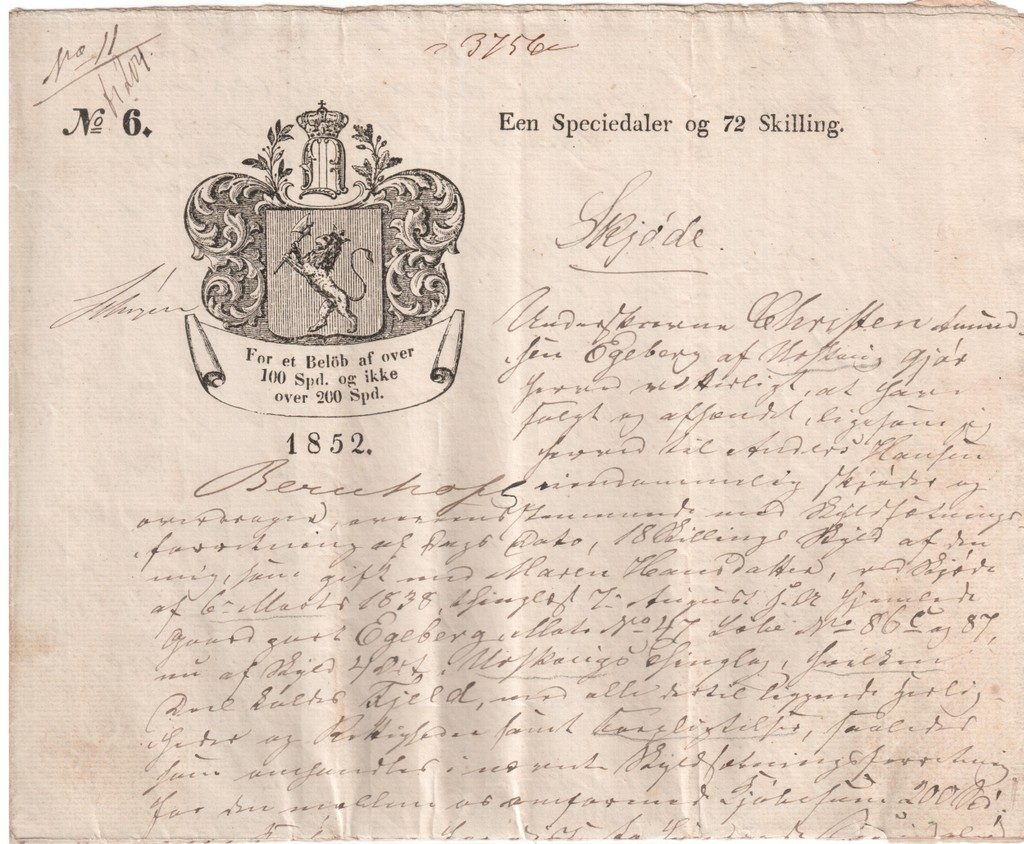 3756
No 6.
Een Speciedaler og 72 Skilling.
Skjøde.
For et Belöb af over
100 Spd. og ikke
over 200 Spd.
1852.
Underskrevne Christen Amund-
sen Egeberg af Urskoug gjør
herved vitterligt, at have
solgt og afhændet, ligesom jeg
herved til Anders Hansen
Bernhoft skjøder og
overdrager, overensstemmende med Skyldsætnings-
forretning af Dags Dato, 18 Skillings Skyld af den
mig, som gift med Maren Hansdatter, ved Skjøde
af 6te Marts 1838, thinglæst 7de August s. A. hjemlede
Gaardpart Egeberg, Mat. No 47 Løbe No 86c og 87,
nu af Skyld i Urskougs Thinglag, hvilken
Deel kaldes Fjeld, med alle dertil liggende Herlig-
heder og Rettigheder samt Forpligtelser, saaledes
som omhandles i nævnte Skyldsætningsforretning
for den mellem os omforenede Kjøbesum 200 Spd.